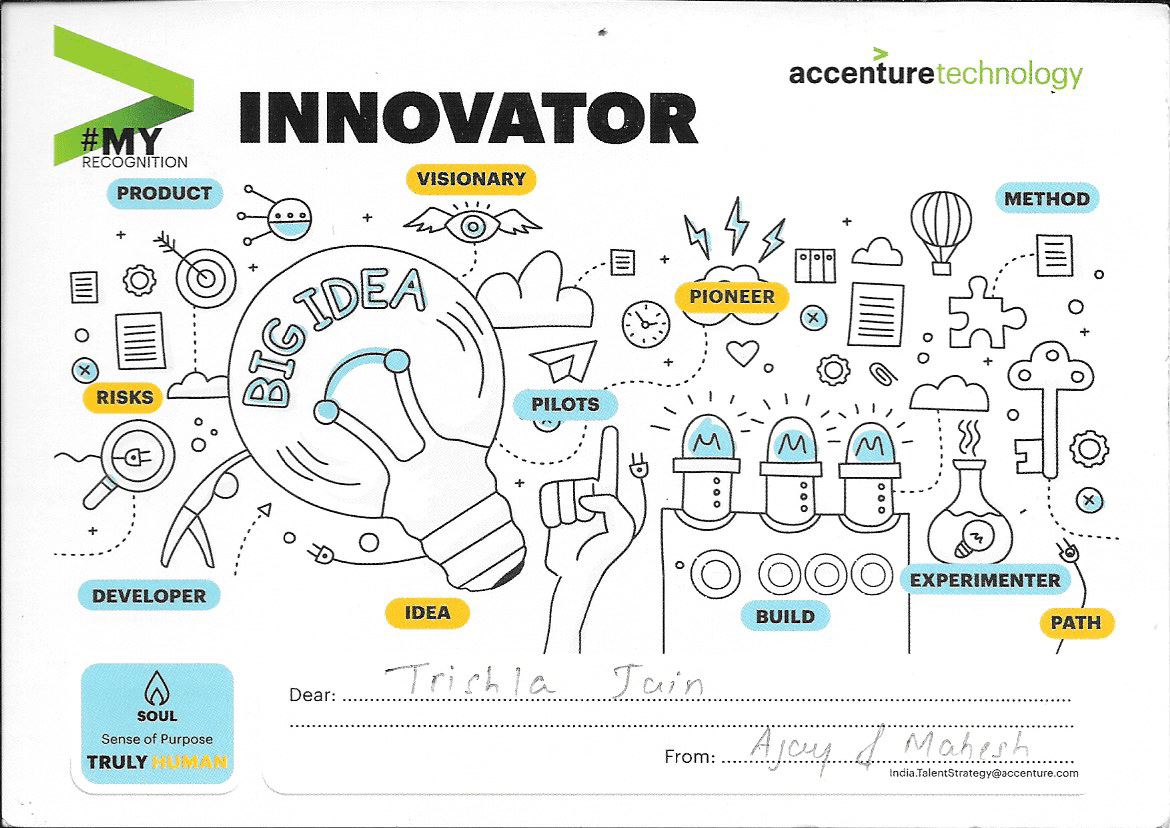 accenturetechnology
INNOVATOR
#MY
RECOGNITION
PRODUCT
VISIONARY
METHOD
BIG IDEA
PIONEER
RISKS
PILOTS
DEVELOPER
IDEA
BUILD
EXPERIMENTER
PATH
SOUL
Sense of Purpose
TRULY HUMAN
Dear: Trishla Jain
From: Ajay & Mahesh
India.TalentStrategy@accenture.com